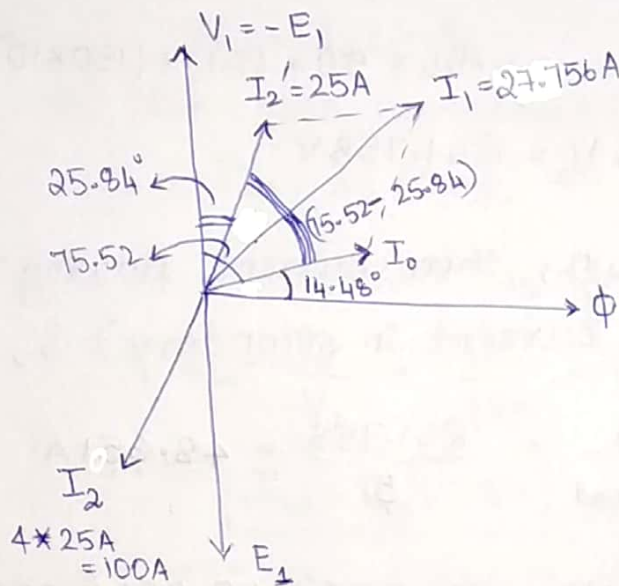 V₁ = - E₁
I₂' = 25A
I₁ = 27.756A
25.84°
(75.52 - 25.84)
75.52
I₀
14.48°
ϕ
I₂
4*25A
= 100A
E₁